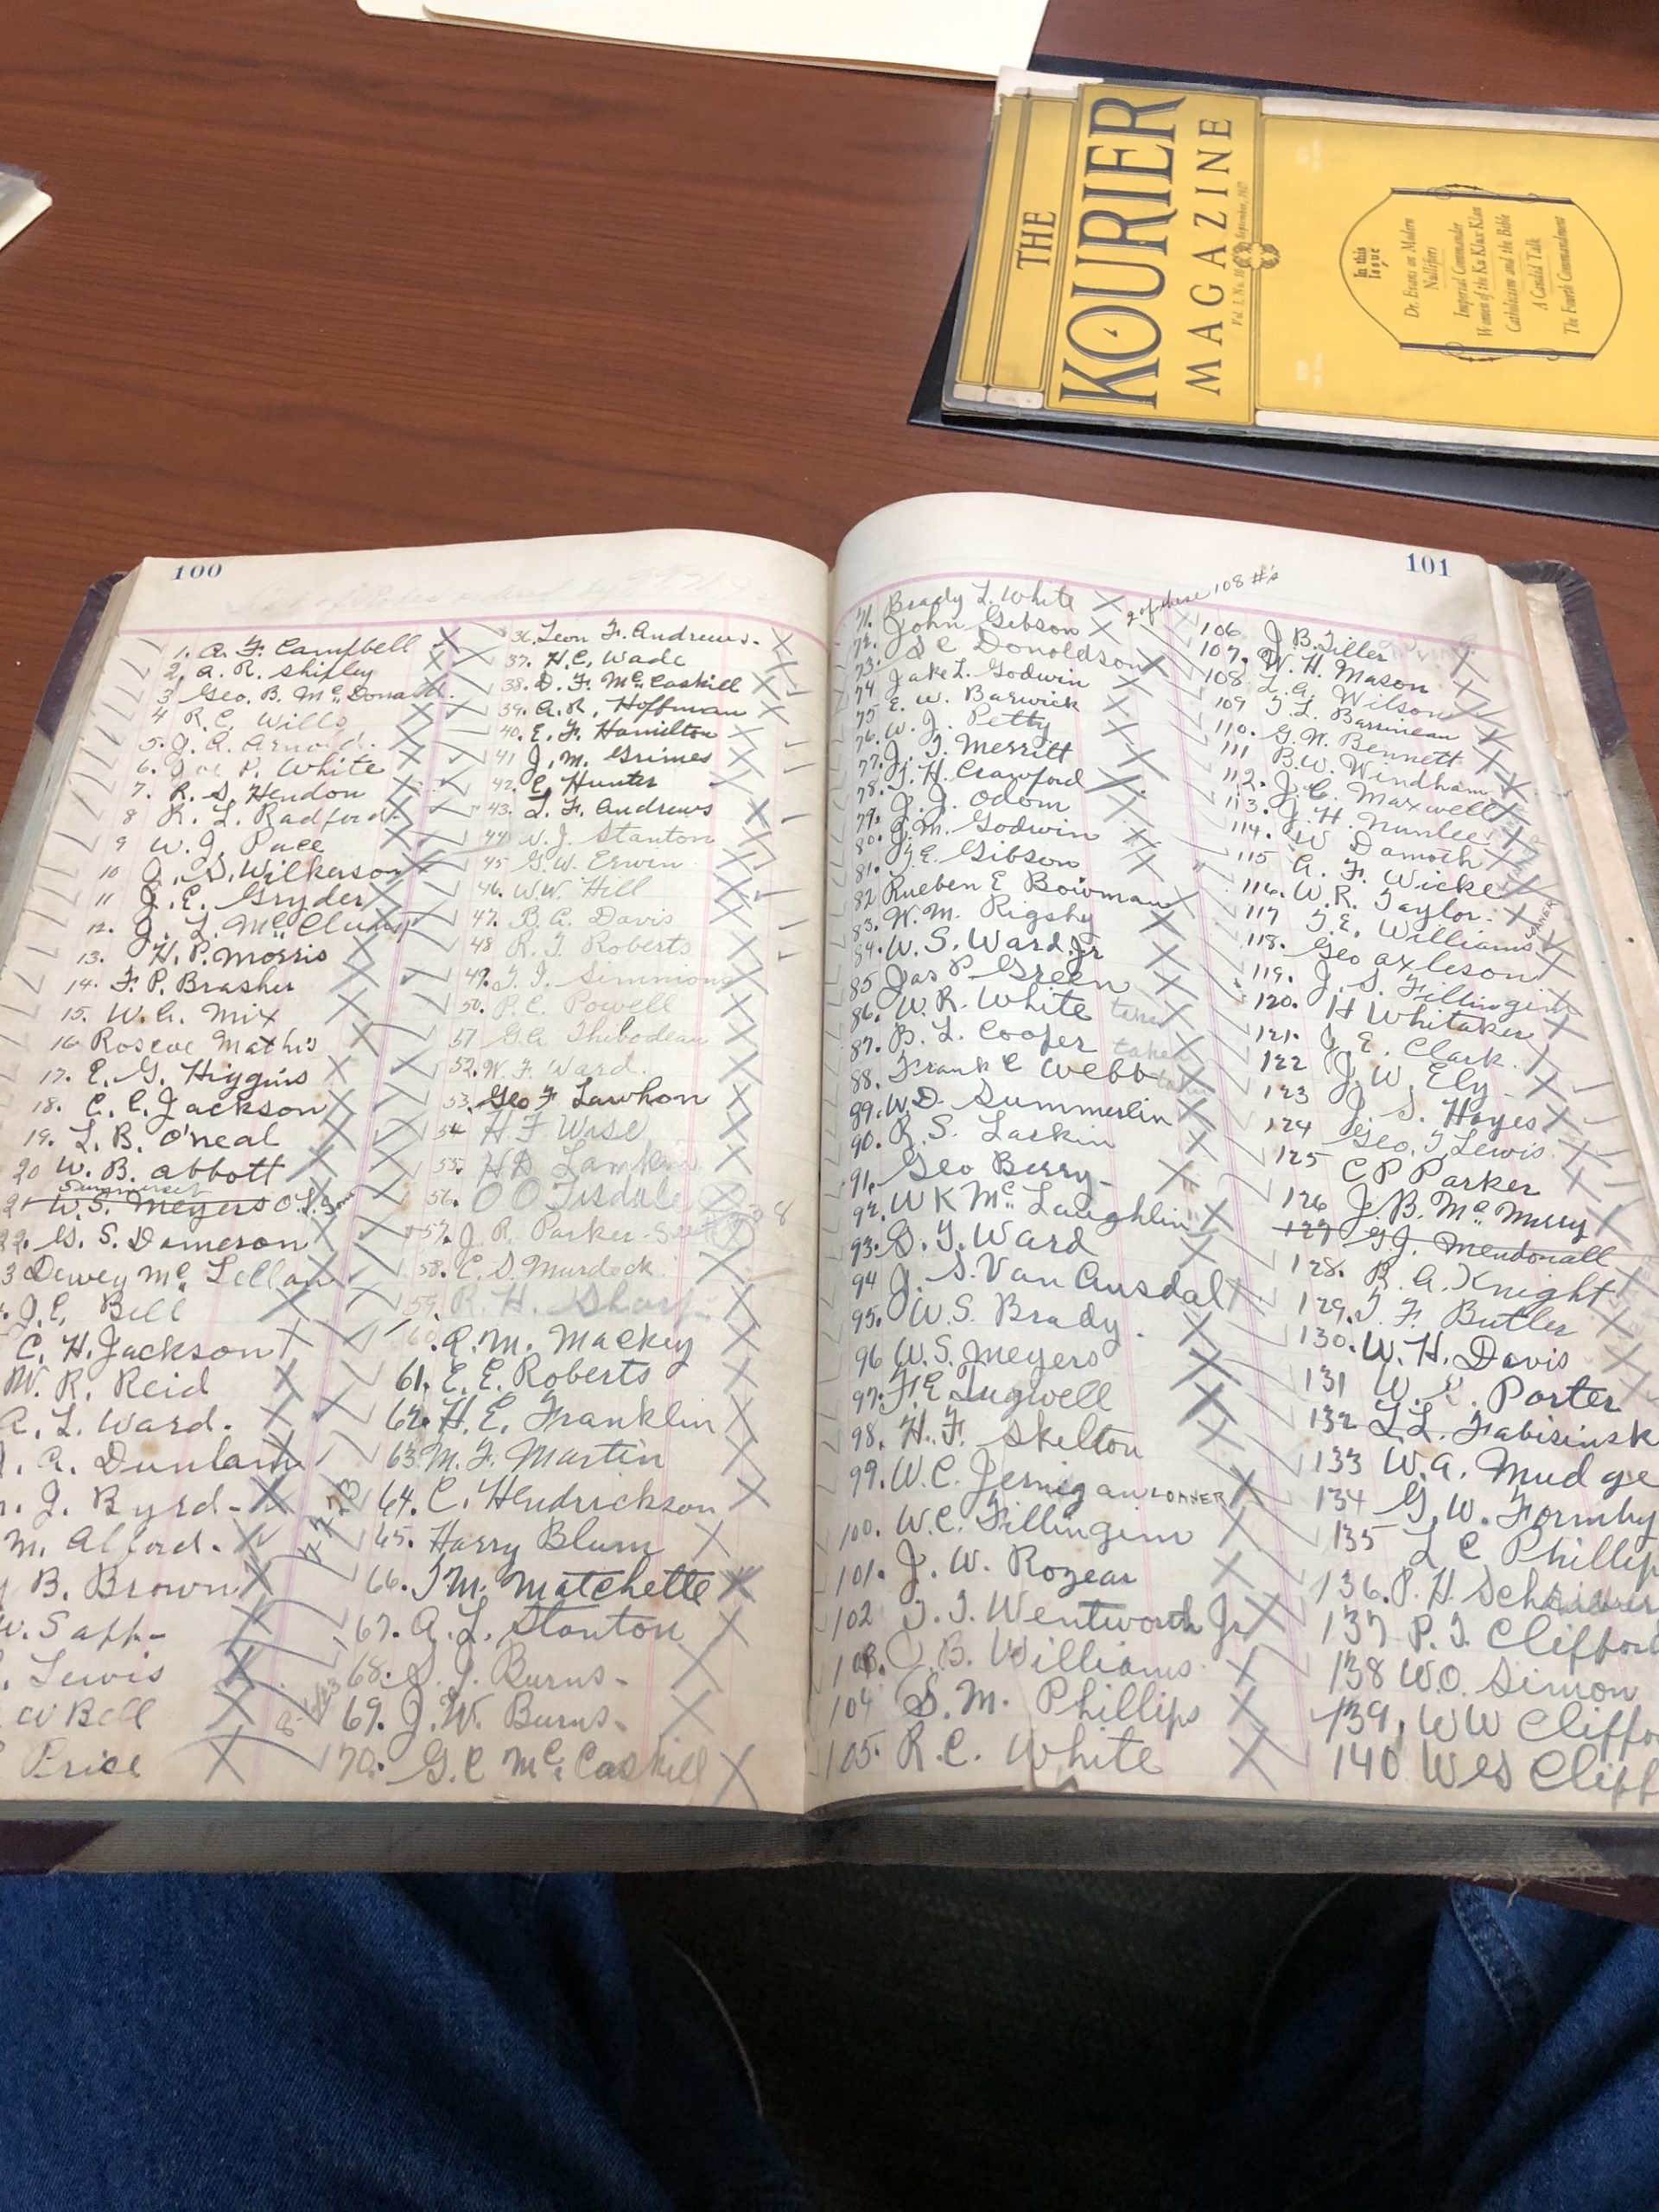 THE
KOURIER
MAGAZINE
Vol. 3, No. 10 September, 1927
In this
Issue
Dr. Evans on Modern
Nullifiers
Imperial Commander
Women of the Ku Klux Klan
Catholicism and the Bible
A Candid Talk
The Fourth Commandment
100
1. A. F. Campbell
2. A. R. Shipley
3 Geo. B. McDonald.
4 R. C. Wills
5. J. A. Arnold.
6. Joe P. White
7. R. S. Hendon
8 R. L. Radford.
9 W. J. Pace
10 J. S. Wilkerson
11 J. E. Gryder
12. J. L. McClung
13. H. P. Morris
14. F. P. Brasher
15. W. A. Mix
16 Roscoe Mathis
17. E. G. Higgins
18. C. C. Jackson
19. L. B. O'neal
20 W. B. Abbott
21 W. S. Meyers
22. G. S. Dameron
3 Dewey McLellan
J. E. Bell
C. H. Jackson
W. R. Reid
A. L. Ward.
A. Dunlam
J. Byrd-
M. Alford.
B. Brown
W. Sapp-
Lewis
W Bell
Price
36. Leon F. Andrews.
37. H. C. Wade
38. D. F. McCaskill
39. A. R. Hoffman
40. E. F. Hamilton
41 J. M. Grimes
42. C. Hunter
43. L. F. Andrews
44 W. J. Stanton
45 G. W. Erwin
46. W. W. Hill
47. B. A. Davis
48 R. J. Roberts
49. J. I. Simmions
50. P. C. Powell
51 G. A Thibodeau
52. W. F. Ward.
53. Geo F Lawhon
54 H F Wise
55. H D Lamkin
56. O O Tisdale
57. J. R. Parker-
58. C. D. Murdock
59. R. H. Sharp
60. R. M. Mackey
61. E. E. Roberts
62. H. E. Franklin
63 M. F. Martin
64. C. Hendrickson
65. Harry Blum
66. J M. Matchette
67. A. L. Stanton
68. S. J. Burns-
69. J. W. Burns-
70. G. C McCaskill
101
2 of these 108 #'s
71. Brady L. White
72. John Gibson
73. S C Donoldson
74 Jake L. Godwin
75 E. W. Barwick
76. W. J. Petty
77. J. J. Merritt
78. J. H. Crawford
79. J. J. Odom
80. J. M. Godwin
81. J. E. Gibson
82 Rueben E Bowman
83. W. M. Rigsby
84. W. S. Ward. Jr
85 Jas P Green
86. W. R. White taken
87. B. L. Cooper taken
88. Frank C Webb
89. W. D. Summerlin
90. R. S. Larkin
91. Geo Berry-
92. W K McLaughlin
93. S. J. Ward
94 J. S. Van Ausdal
95. W. S. Brady.
96 W. S. Meyers
97. F. E Tugwell
98. H. F. Skelton
99. W. C. Jernigan LOANER
100. W. C. Fillingem
101. J. W. Rozear
102 J. J. Wentworth Jr
103. B. Williams
104 S. M. Phillips
105. R. C. White
106 J B. Tiller
107. W. H. Mason
108 L. A. Wilson
109 J. L. Barrineau
110. G. W. Bennett
111 B. W. Windham
112. J. C. Maxwell
113. J. H. Nunlee
114. W Damoth
115 A. F. Wicke
116. W. R. Taylor.
117 J. E. Williams
118. Geo Axleson
119. J. S. Fillingim
120. H Whitaker
121. J. E. Clark.
122 J. W. Ely
123 J. S. Hayes
124 Geo. J Lewis
125 C P Parker
126 J. B. McMurry
127 G. J. Mendonall
128. R. A. Knight
129. J. F. Butler
130. W. H. Davis
131 W. E. Porter
132 L. L. Fabisinsk
133 W. A. Mudge
134 G. W. Formby
135 L C Phillip
136. P. H. Schreiber
137 P. J. Clifford
138 W. O. Simon
139, W W Cliffo
140 Wes Cliff